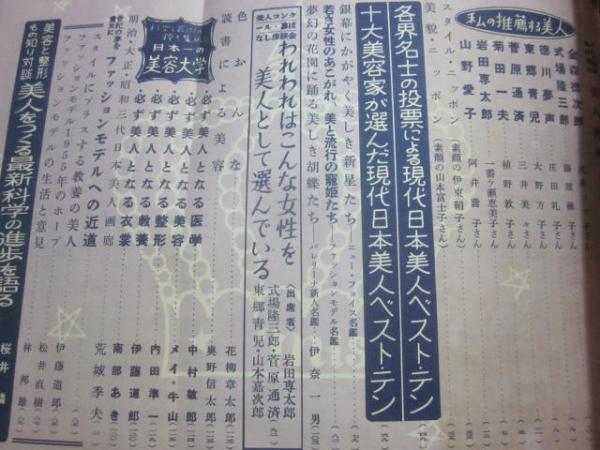 私の推薦する美人
金森徳次郎
式場隆三郎
徳川夢声
東郷青児
菅原通済
菊田一夫
岩田専太郎
山野愛子
庄田礼子さん
大野方子さん
植野敦子さん
三井美々さん
一番ヶ瀬恵美子さん
阿井壽子さん
スタイル・ニッポン(素顔の伊東絹子さん)
美貌・ニッポン(素顔の山本富士子さん)
各界名士の投票による現代日本美人ベスト・テン
十大美容家が選んだ現代日本美人ベスト・テン
銀幕にかがやく美しき新星たち――ニュー・フェイス名鑑
若き女性のあこがれ、美と流行の寵姫たち――ファッションモデル名鑑
夢幻の花園に踊る美しき胡蝶たち――バレリーナ新人名鑑・伊奈一男
美人コンクール・裏ばなし座談会
われわれはこんな女性を美人として選んでいる
〈出席者〉
岩田専太郎
式場隆三郎・菅原通済
東郷青児・山本嘉次郎
色おんな 花柳章太郎
読書による美容 奥野信太郎
日本一の美容大学
・必ず美人となる医学 中村敏郎
・必ず美人となる美容 メイ・牛山
・必ず美人となる整形 内田準一
・必ず美人となる教養 伊藤道郎
・必ず美人となる衣裳 南部あき
明治・大正・昭和三代日本美人画廊 荒城季夫
世紀の夢を貴女に
ファッションモデルへの近道
スタイルにプラスする教養の美人 伊藤道郎
ファッションモデル1955年のホープ 松井直樹
ファッションモデルの生活と意見 林邦雄
美容と整形もの知り対談
美人をつくる最新科学の進歩を語る
桜井